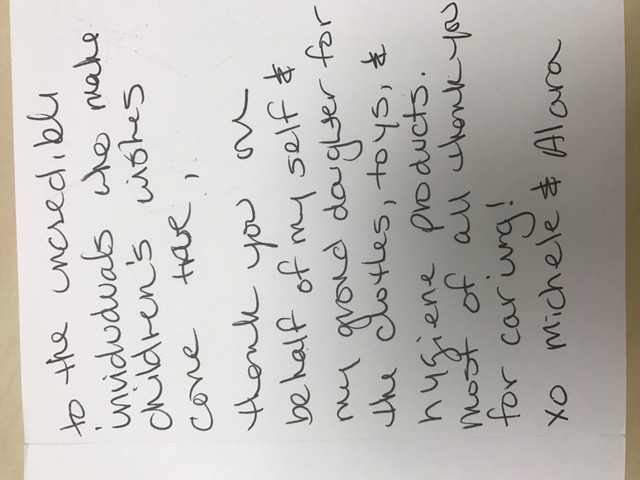 to the incredible
individuals who make
children's wishes
come true,
thank you on
behalf of my self &
my grand daughter for
the clothes, toys, &
hygiene products.
most of all thank you
for caring!
xo michele & Alara